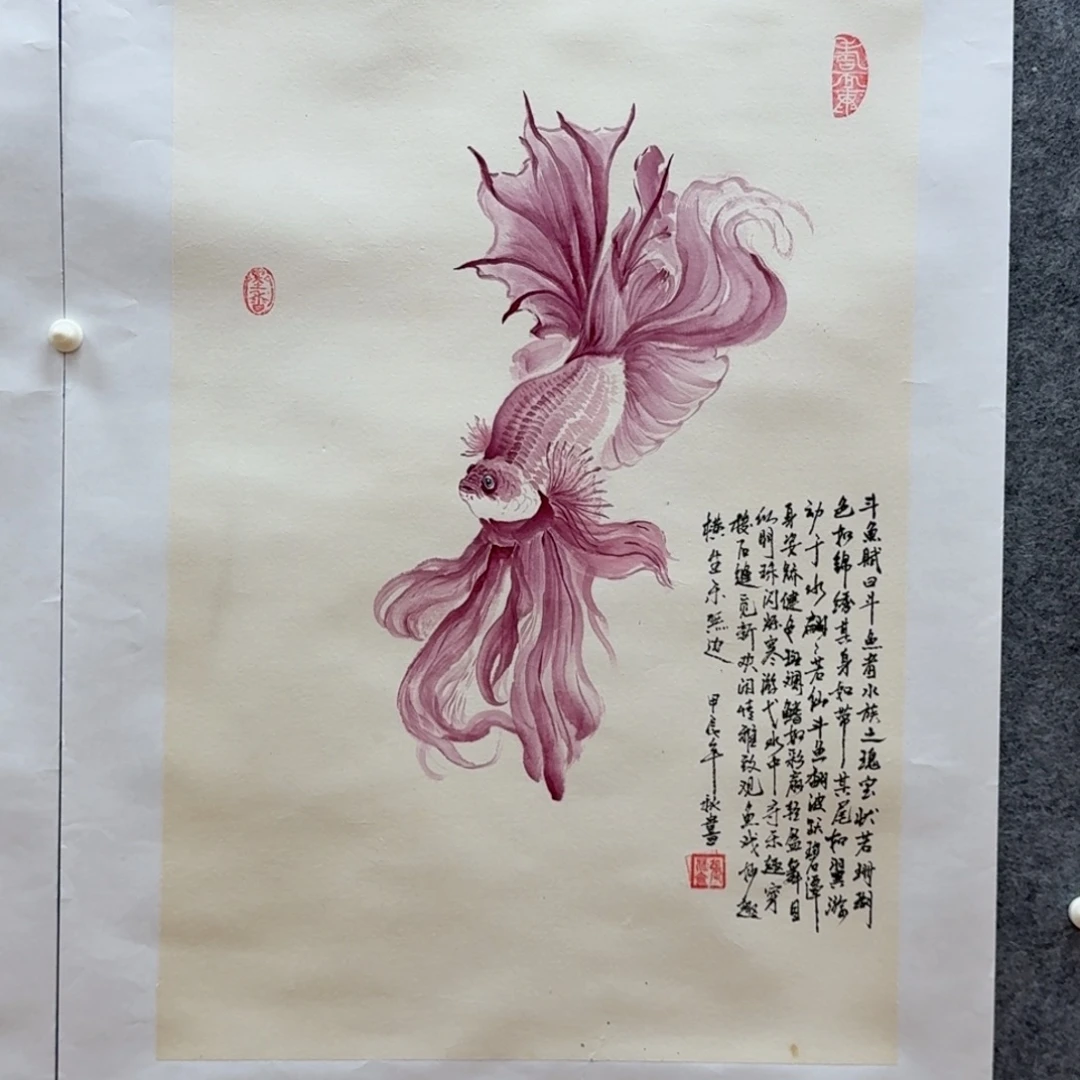 斗鱼赋曰斗鱼者水族之瑰宝状若珊瑚
色如锦绣其身如带其尾如翼游
动于水翩々若仙斗鱼翻波跃碧潭
身姿矫健色斑斓鳍如彩扇轻盈舞目
似明珠闪烁寒游弋水中寻乐趣穿
梭石缝觅新欢闲情雅致观鱼戏妙趣
横生乐无边
甲辰年秋
墨香